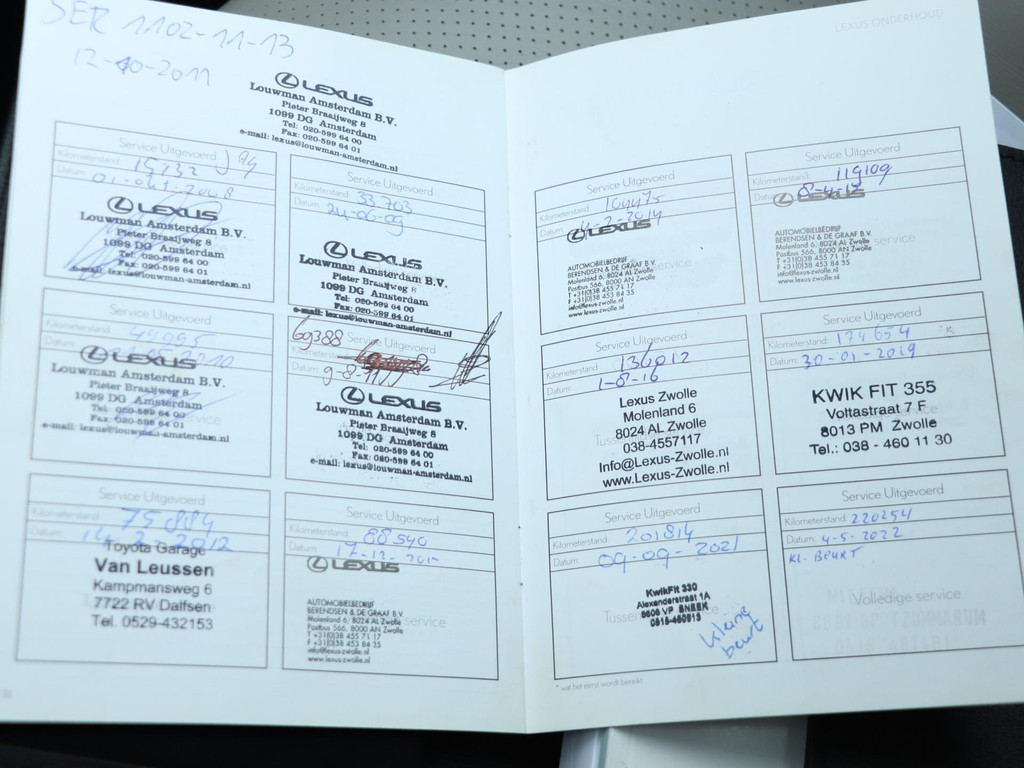 SER 1102-11-13
12-10-2011
LEXUS
Louwman Amsterdam B.V.
Pieter Braaijweg 8
1099 DG Amsterdam
Tel: 020-599 64 00
Fax: 020-599 64 01
e-mail: lexus@louwman-amsterdam.nl
Service Uitgevoerd
Kilometerstand:
Datum:
LEXUS
Louwman Amsterdam B.V.
Pieter Braaijweg 8
1099 DG Amsterdam
Tel: 020-599 64 00
Fax: 020-599 64 01
e-mail: lexus@louwman-amsterdam.nl
Service Uitgevoerd
Kilometerstand: 33.703
Datum: 24-06-09
LEXUS
Louwman Amsterdam B.V.
Pieter Braaijweg 8
1099 DG Amsterdam
Tel: 020-599 64 00
Fax: 020-599 64 01
e-mail: lexus@louwman-amsterdam.nl
Service Uitgevoerd
Kilometerstand:
Datum: 2010
LEXUS
Louwman Amsterdam B.V.
Pieter Braaijweg 8
1099 DG Amsterdam
Tel: 020-599 64 00
Fax: 020-599 64 01
e-mail: lexus@louwman-amsterdam.nl
69388 Service Uitgevoerd
LEXUS
Louwman Amsterdam B.V.
Pieter Braaijweg 8
1099 DG Amsterdam
Tel: 020-599 64 00
Fax: 020-599 64 01
e-mail: lexus@louwman-amsterdam.nl
Service Uitgevoerd
Kilometerstand: 75884
Datum: 14-2-2012
Toyota Garage
Van Leussen
Kampmansweg 6
7722 RV Dalfsen
Tel. 0529-432153
Service Uitgevoerd
Kilometerstand: 88540
Datum: 17-12-
LEXUS
AUTOMOBIELBEDRIJF
BERENDSEN & DE GRAAF B.V.
Molenland 6, 8024 AL Zwolle
Postbus 566, 8000 AN Zwolle
T +31(0)38 455 71 17
F +31(0)38 453 84 35
info@lexus-zwolle.nl
www.lexus-zwolle.nl
LEXUS ONDERHOUD
Service Uitgevoerd
Kilometerstand: 104475
Datum: 4-2-2014
LEXUS
AUTOMOBIELBEDRIJF
BERENDSEN & DE GRAAF B.V.
Molenland 6, 8024 AL Zwolle
Postbus 566, 8000 AN Zwolle
T +31(0)38 455 71 17
F +31(0)38 453 84 35
info@lexus-zwolle.nl
www.lexus-zwolle.nl
Service Uitgevoerd
Kilometerstand: 119109
Datum:
LEXUS
AUTOMOBIELBEDRIJF
BERENDSEN & DE GRAAF B.V.
Molenland 6, 8024 AL Zwolle
Postbus 566, 8000 AN Zwolle
T +31(0)38 455 71 17
F +31(0)38 453 84 35
info@lexus-zwolle.nl
www.lexus-zwolle.nl
Service Uitgevoerd
Kilometerstand: 136012
Datum: 1-8-16
Lexus Zwolle
Molenland 6
8024 AL Zwolle
038-4557117
Info@Lexus-Zwolle.nl
www.Lexus-Zwolle.nl
Service Uitgevoerd
Kilometerstand: 174654
Datum: 30-01-2019
KWIK FIT 355
Voltastraat 7 F
8013 PM Zwolle
Tel.: 038 - 460 11 30
Service Uitgevoerd
Kilometerstand: 201814
Datum: 09-09-2021
KwikFit 330
Alexanderstraat 1A
8606 VP SNEEK
0515-460913
kleine
beurt
Service Uitgevoerd
Kilometerstand: 220254
Datum: 4-5-2022
KL- BEURT
Volledige service
* wat het eerst wordt bereikt